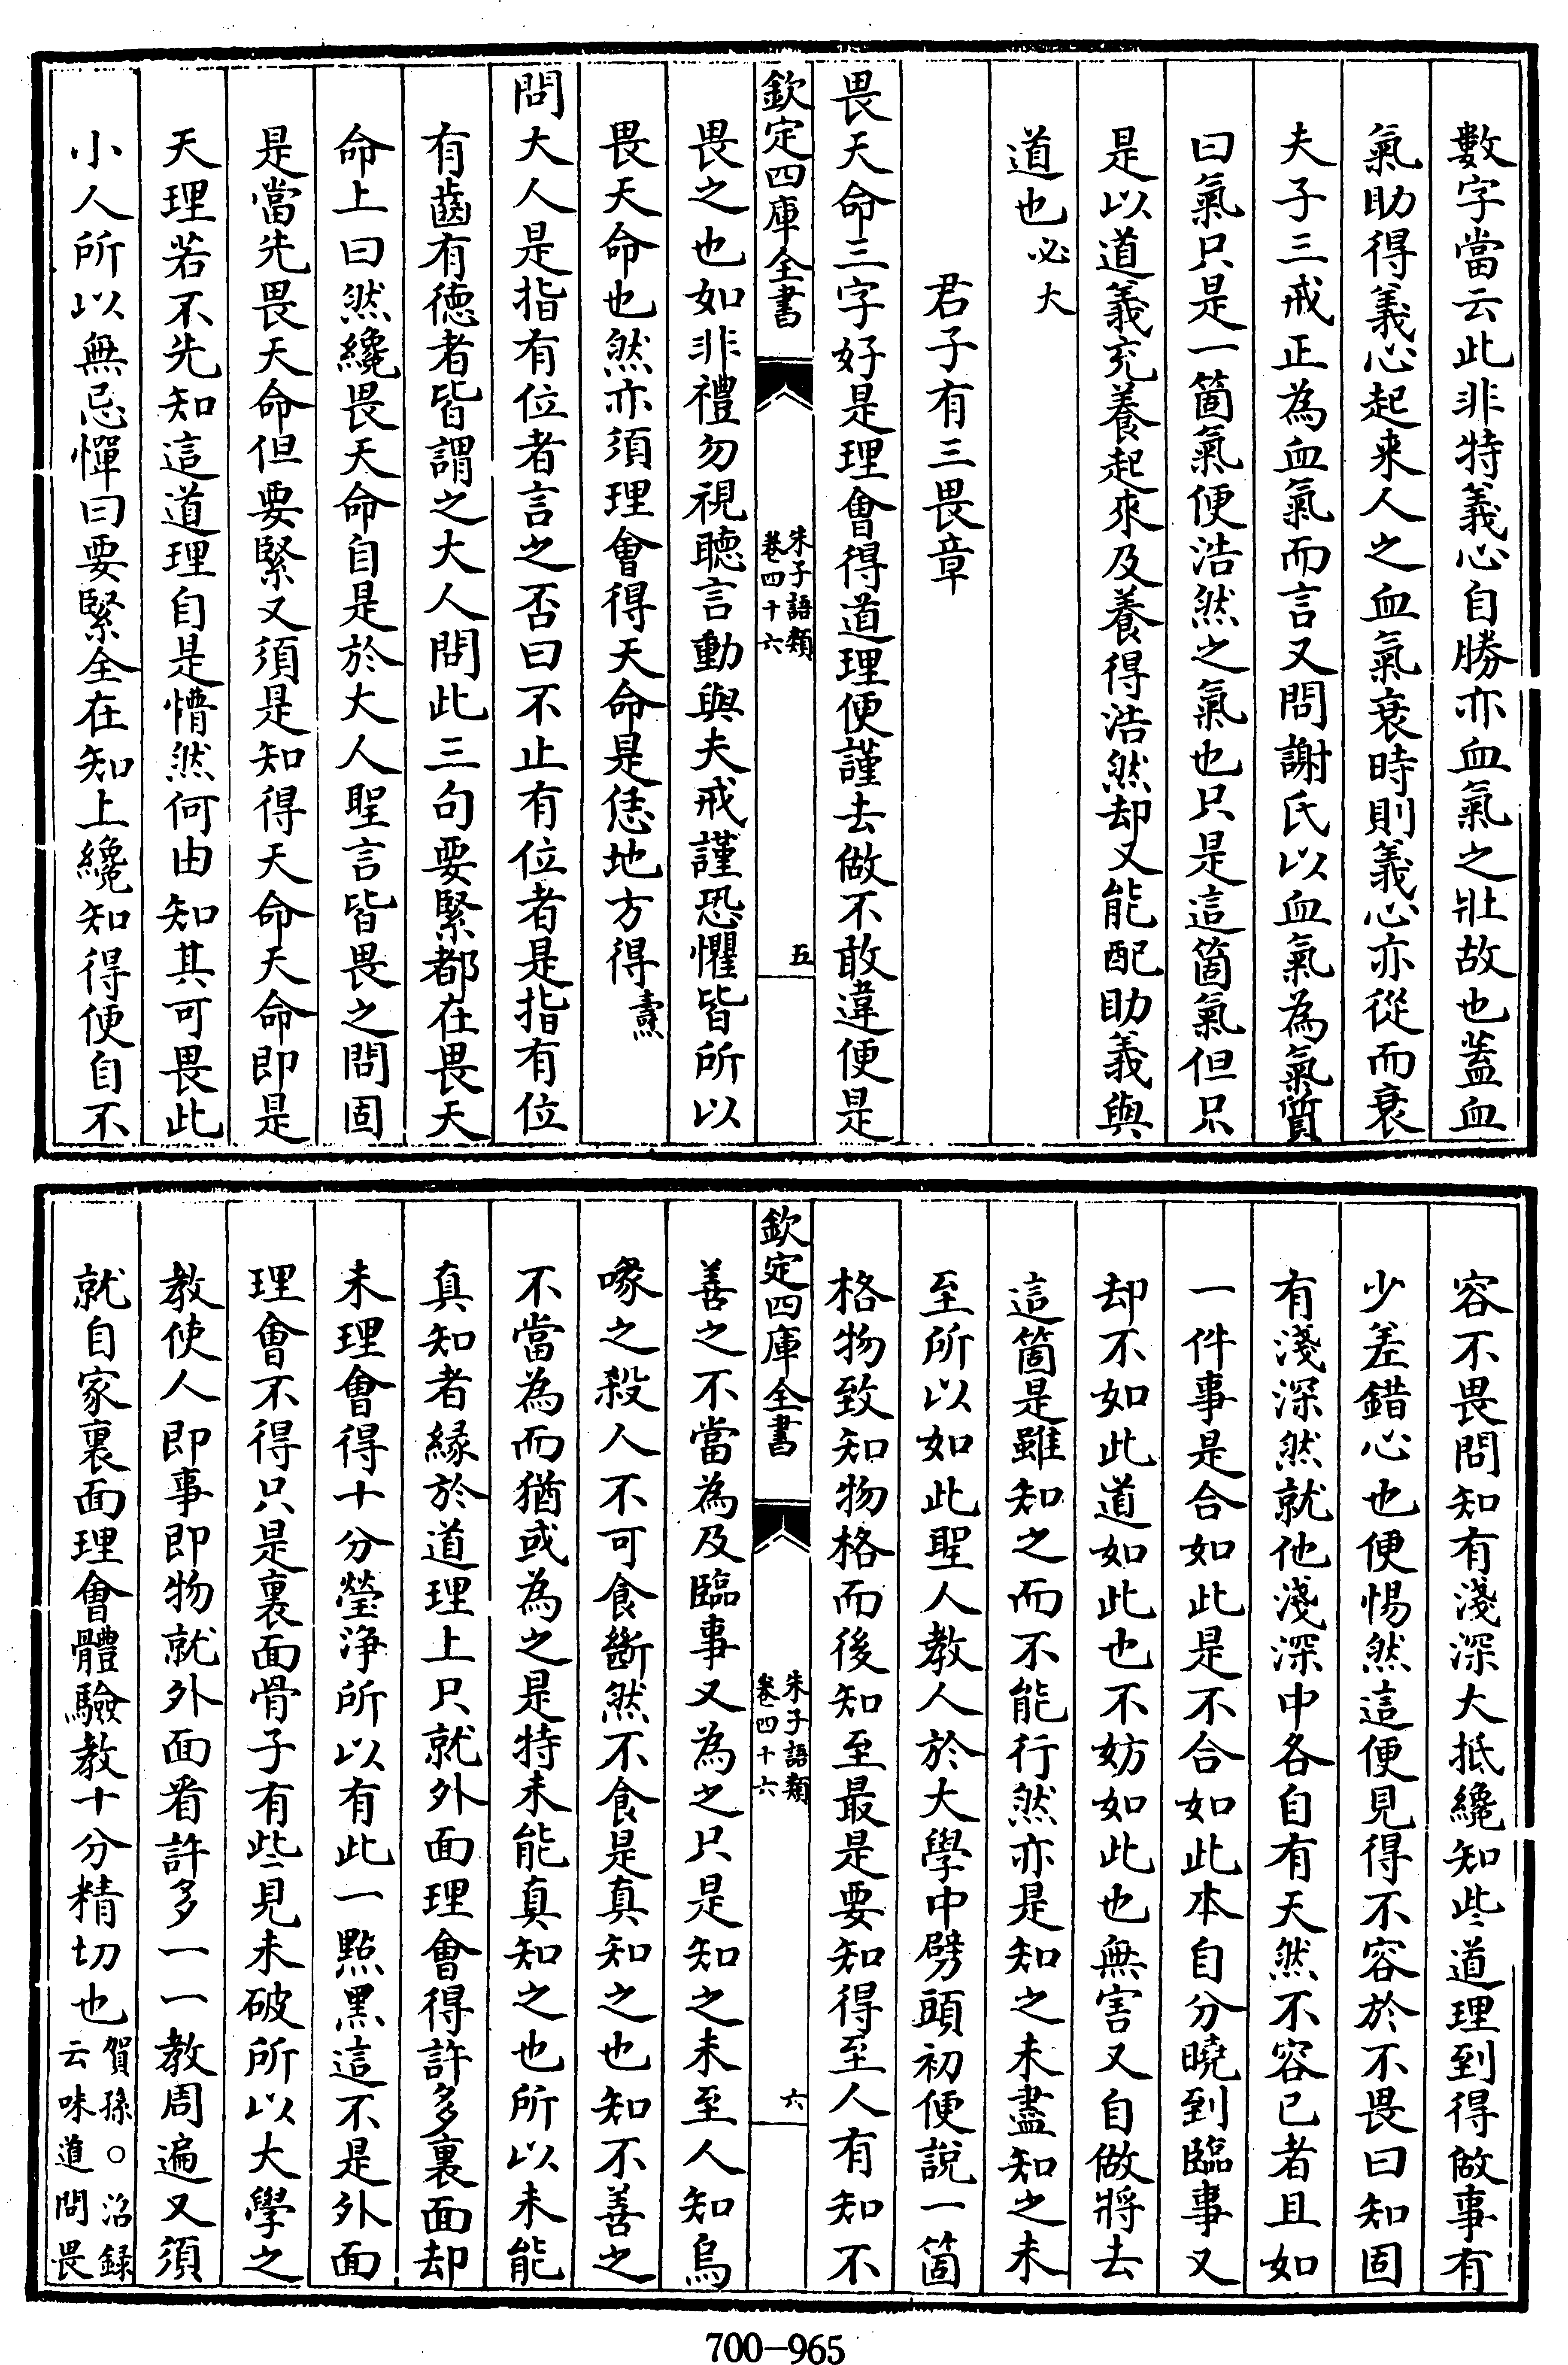 數字當云此非特義心自勝亦血氣之壯故也蓋血
氣助得義心起来人之血氣衰時則義心亦從而衰
夫子三戒正為血氣而言又問謝氏以血氣為氣質
曰氣只是一箇氣便浩然之氣也只是這箇氣但只
是以道義充養起來及養得浩然却又能配助義與
道也必大
君子有三畏章
畏天命三字好是理會得道理便謹去做不敢違便是
欽定四庫全書
朱子語類
卷四十六
五
畏之也如非禮勿視聴言動與夫戒謹恐懼皆所以
畏天命也然亦須理會得天命是恁地方得燾
問大人是指有位者言之否曰不止有位者是指有位
有齒有徳者皆謂之大人問此三句要緊都在畏天
命上曰然纔畏天命自是於大人聖言皆畏之問固
是當先畏天命但要緊又須是知得天命天命即是
天理若不先知這道理自是懵然何由知其可畏此
小人所以無忌憚曰要緊全在知上纔知得便自不
容不畏問知有淺深大抵纔知些道理到得做事有
少差錯心也便惕然這便見得不容於不畏曰知固
有淺深然就他淺深中各自有天然不容已者且如
一件事是合如此是不合如此本自分曉到臨事又
却不如此道如此也不妨如此也無害又自做將去
這箇是雖知之而不能行然亦是知之未盡知之未
至所以如此聖人教人於大學中劈頭初便説一箇
格物致知物格而後知至最是要知得至人有知不
欽定四庫全書
朱子語類
卷四十六
六
善之不當為及臨事又為之只是知之未至人知烏
喙之殺人不可食斷然不食是真知之也知不善之
不當為而猶或為之是特未能真知之也所以未能
真知者緣於道理上只就外面理會得許多裏面却
未理會得十分瑩浄所以有此一點黑這不是外面
理會不得只是裏面骨子有些見未破所以大學之
教使人即事即物就外面看許多一一教周遍又須
就自家裏面理會體驗教十分精切也賀孫○㳂録
云味道問畏
700-965